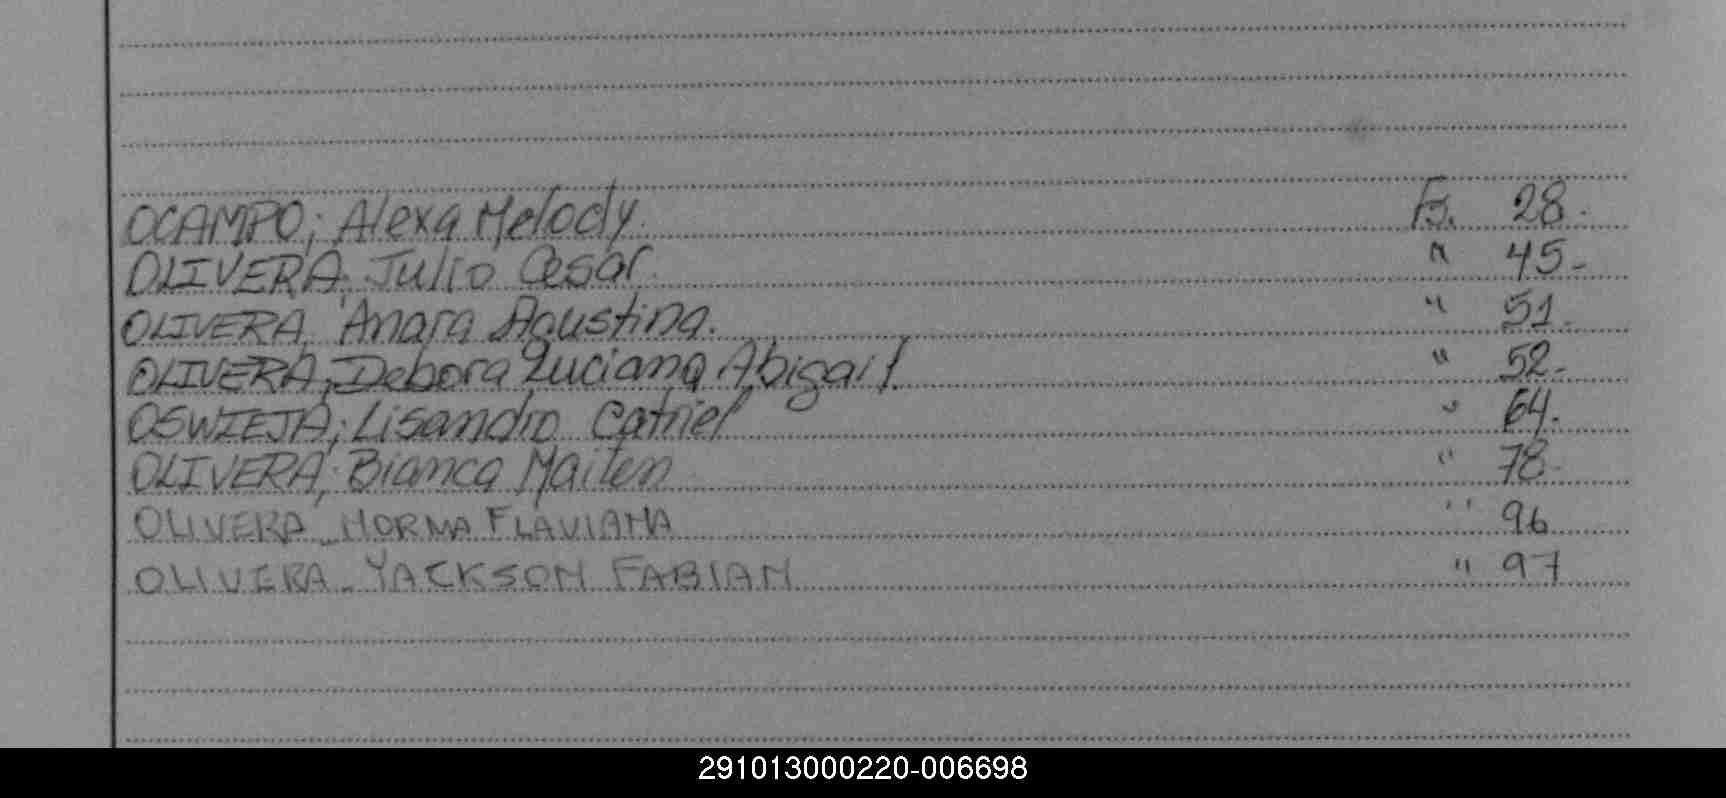 OCAMPO; Alexa Melody. Fs. 28.-
OLIVERA; Julio Cesar. " 45-
OLIVERA, Anara Agustina. " 51.-
OLIVERA; Debora Luciana Abigail. " 52.-
OSWIEJA; Lisandro Catriel " 64.
OLIVERA; Bianca Mailen " 78.-
OLIVERA_ NORMA FLAVIANA " 96
OLIVERA_ YACKSON FABIAN " 97
291013000220-006698